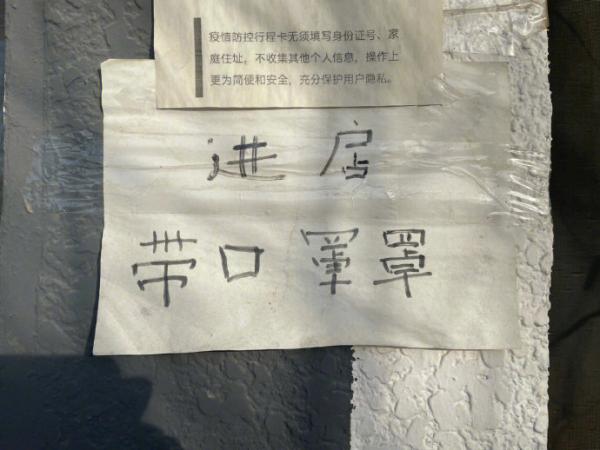 疫情防控行程卡无须填写身份证号、家
庭住址，不收集其他个人信息，操作上
更为简便和安全，充分保护用户隐私。
进店
带口罩罩